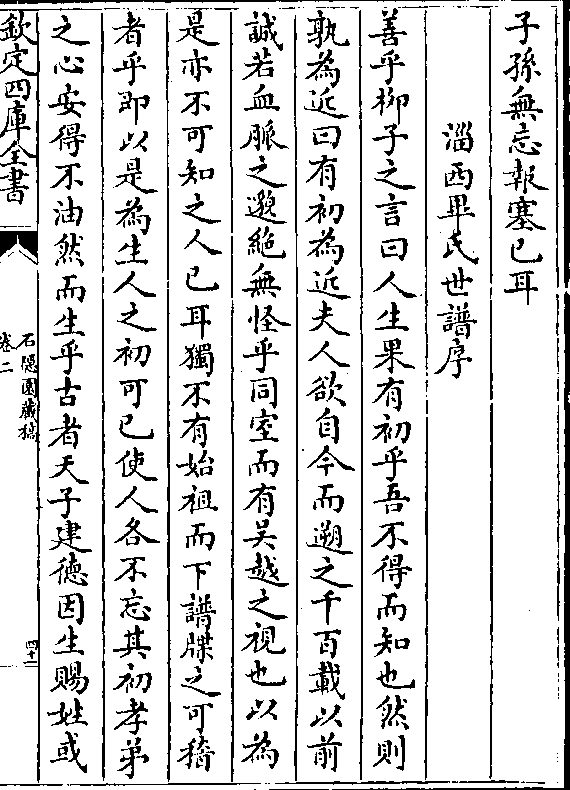 子孫無忘報塞已耳
淄西畢氏世譜序
善乎柳子之言曰人生果有初乎吾不得而知也然則
孰為近曰有初為近夫人欲自今而遡之千百載以前
誠若血脈之邈絶無怪乎同室而有吴越之視也以為
是亦不可知之人已耳獨不有始祖而下譜牒之可稽
者乎即以是為生人之初可已使人各不忘其初孝弟
之心安得不油然而生乎古者天子建德因生賜姓或
欽定四庫全書
石隱園藏稿
卷二
四十二